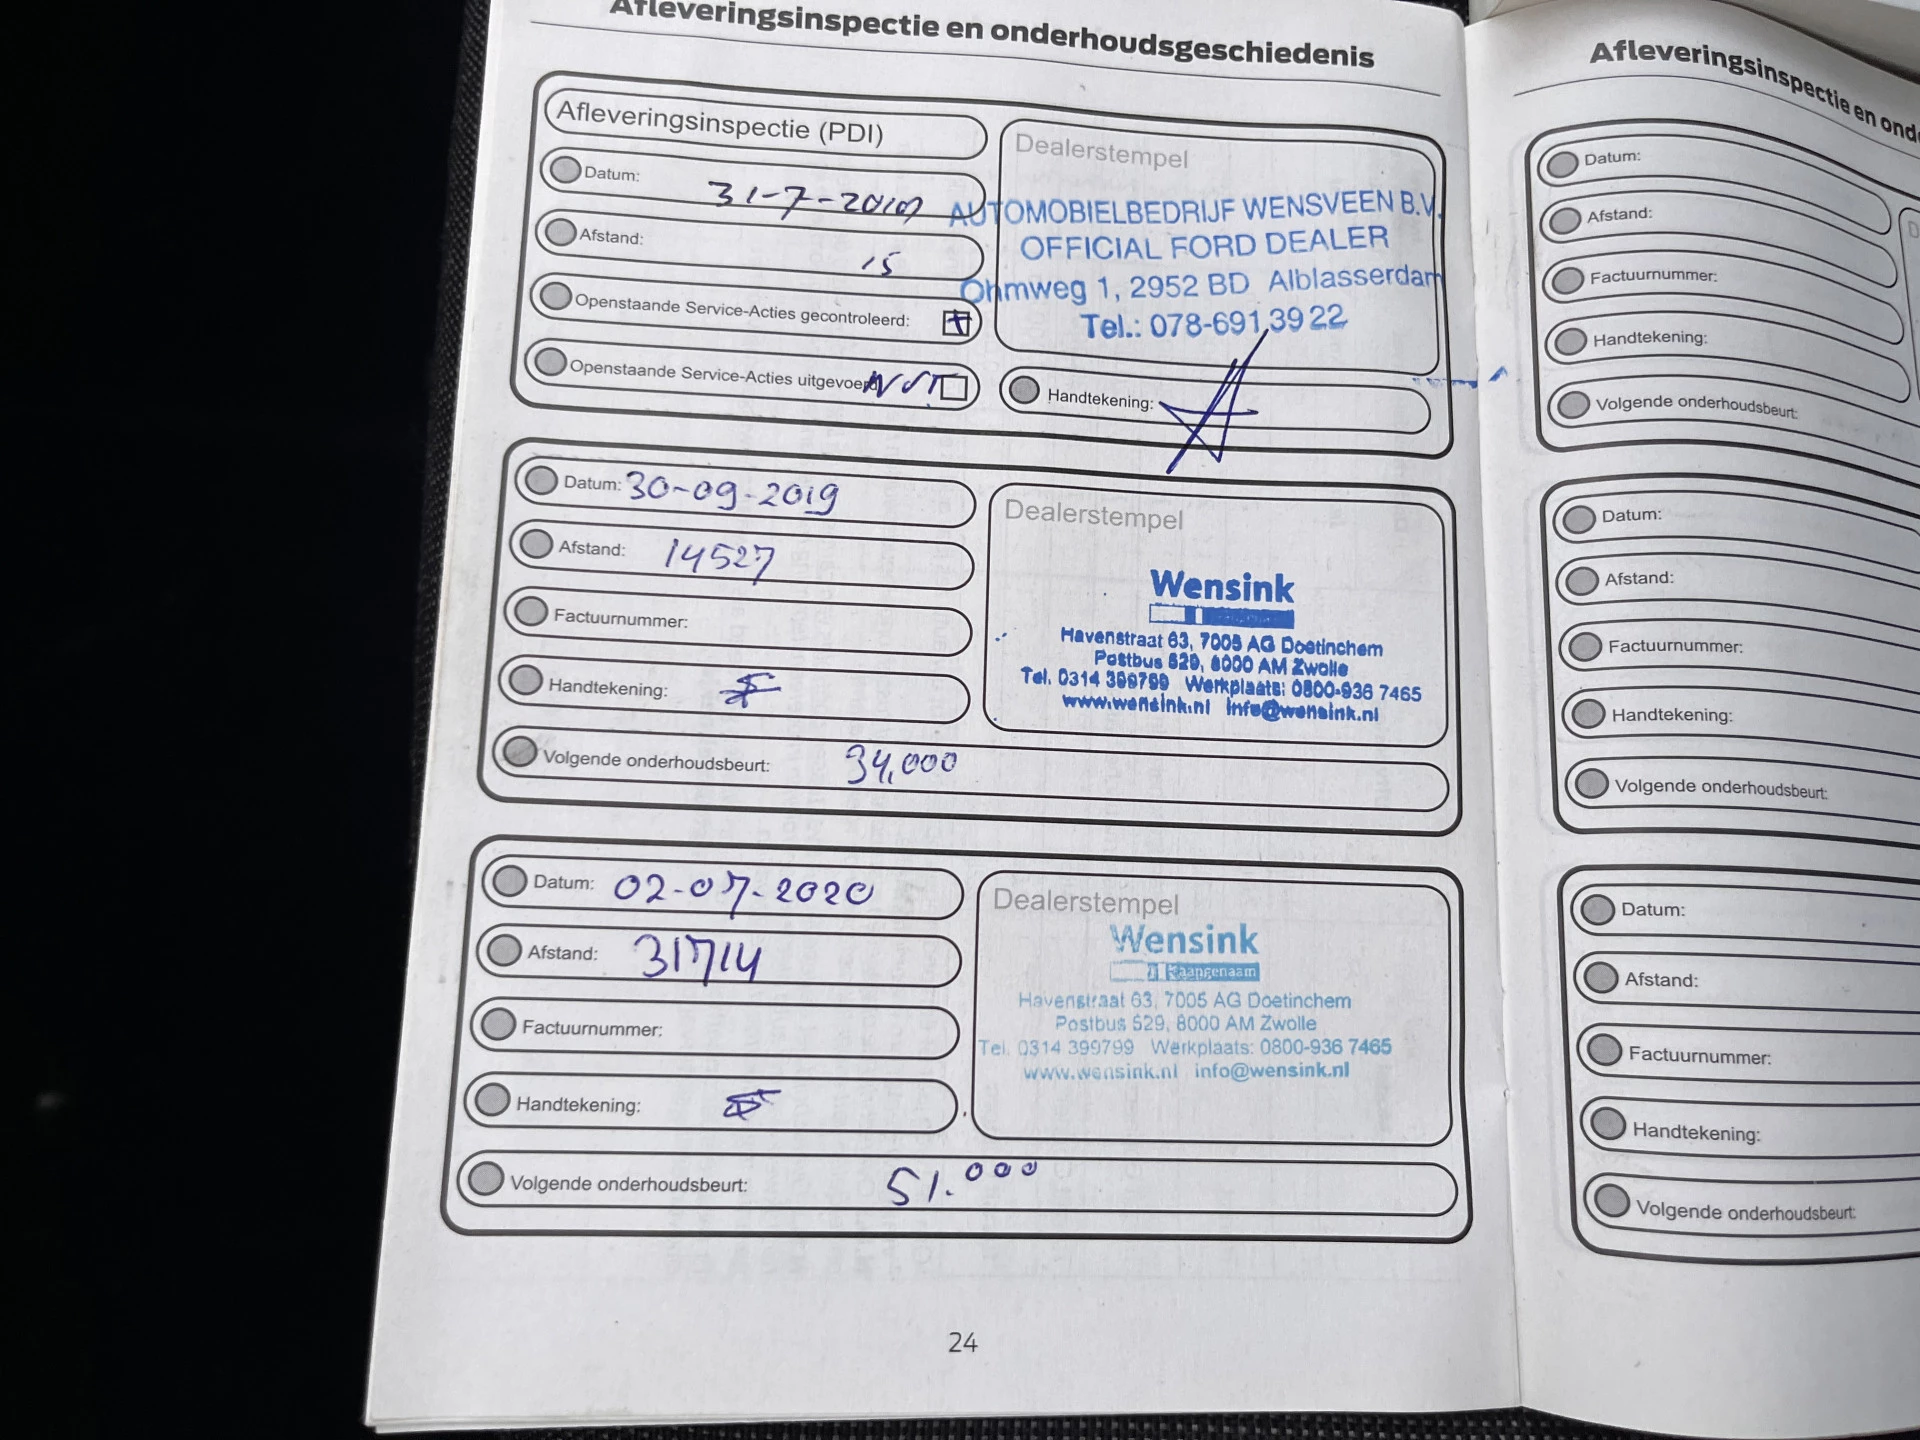 Afleveringsinspectie en onderhoudsgeschiedenis
Afleveringsinspectie (PDI)
Datum: 31-7-2019
Afstand: 15
Openstaande Service-Acties gecontroleerd:
Openstaande Service-Acties uitgevoerd
Dealerstempel
AUTOMOBIELBEDRIJF WENSVEEN B.V.
OFFICIAL FORD DEALER
Ohmweg 1, 2952 BD Alblasserdam
Tel.: 078-691 39 22
Handtekening:
Datum: 30-09-2019
Afstand: 14527
Factuurnummer:
Handtekening:
Volgende onderhoudsbeurt: 34,000
Dealerstempel
Wensink
Havenstraat 63, 7005 AG Doetinchem
Postbus 529, 8000 AM Zwolle
Tel. 0314 399799 Werkplaats: 0800-936 7465
www.wensink.nl info@wensink.nl
Datum: 02-07-2020
Afstand: 31714
Factuurnummer:
Handtekening:
Volgende onderhoudsbeurt: 51.000
Dealerstempel
Wensink
aangenaam
Havenstraat 63, 7005 AG Doetinchem
Postbus 529, 8000 AM Zwolle
Tel. 0314 399799 Werkplaats: 0800-936 7465
www.wensink.nl info@wensink.nl
24
Afleveringsinspectie en ond
Datum:
Afstand:
Factuurnummer:
Handtekening:
Volgende onderhoudsbeurt:
D
Datum:
Afstand:
Factuurnummer:
Handtekening:
Volgende onderhoudsbeurt:
Datum:
Afstand:
Factuurnummer:
Handtekening:
Volgende onderhoudsbeurt: